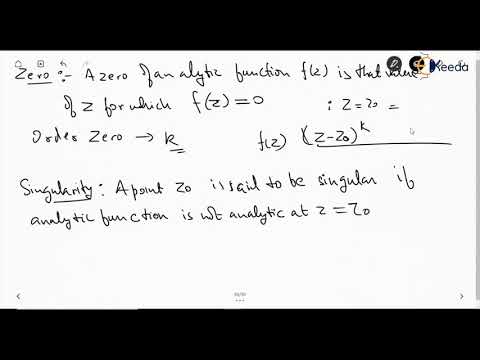 Zero :- A zero of an alytic function f(z) is that value
of z for which f(z) = 0 : z = z0 =
Order Zero → k f(z) (z-z0)^k
Singularity : A point z0 is said to be singular if
analytic function is not analytic at z = z0
Keeda